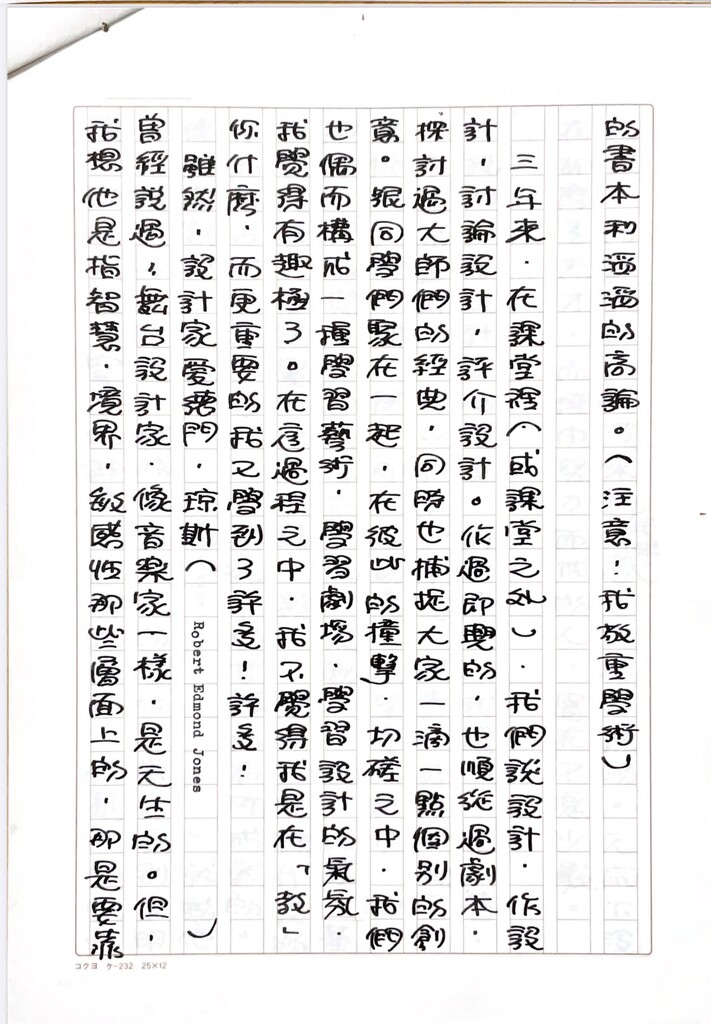 的書本和滔滔的高論。(注意!我敬重學術)
三年來,在課堂裡(或課堂之外),我們談設計,作設
計,討論設計,評介設計。作過即興的,也順從過劇本,
探討過大師們的經典,同時也捕捉大家一滴一點個別的創
意。跟同學們聚在一起,在彼此的撞擊,切磋之中,我們
也偶而構成一種學習藝術,學習劇場,學習設計的氣氛
我覺得有趣極了。在這過程之中,我不覺得我是在「教」
你什麼,而更重要的我又學到了許多!許多!
雖然,設計家愛德門,瓊斯(Robert Edmond Jones)
曾經說過,舞台設計家,像音樂家一樣,是天生的。但,
我想他是指智慧,境界,敏感性那些層面上的,那是要靠
コクヨ ケ-232 25×12